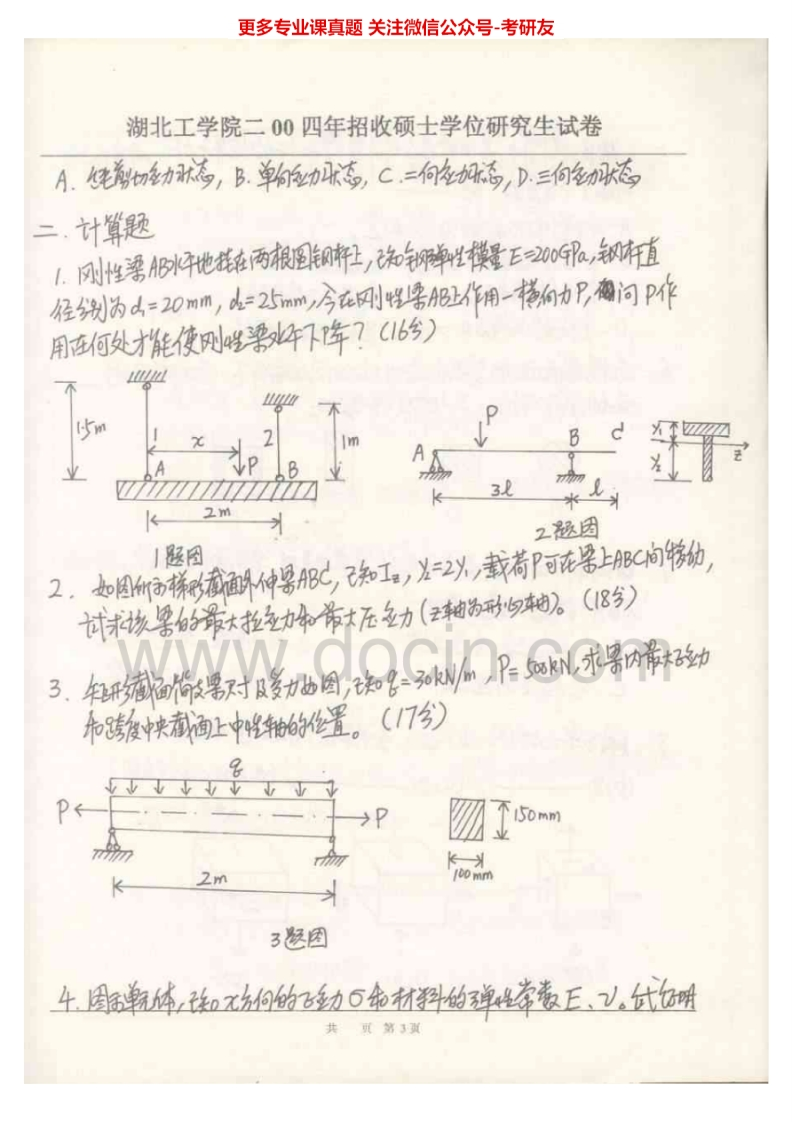 更多专业课真题 关注微信公众号-考研友
湖北工学院二00四年招收硕士学位研究生试卷
A. 纯剪切应力状态, B. 单向应力状态, C. 二向应力状态, D. 三向应力状态
二. 计算题
1. 刚性梁AB水平地挂在两根圆钢杆上, 已知钢弹性模量E=200GPa, 钢杆直
径分别为d₁=20mm, d₂=25mm, 今在刚性梁AB上作用一横向力P, 问P作
用在何处才能使刚性梁水平下降? (16分)
1.5m
1
x
2
1m
A
P
B
2m
1题图
P
A
B
C
3l
l
y₁
y₂
z
2题图
2. 如图所示梯形截面外伸梁ABC, 已知Iz, y₂=2y₁, 载荷P可在梁上ABC间移动,
试求该梁的最大拉应力和最大压应力(z轴为形心轴)。(18分)
www.docin.com
3. 矩形截面简支梁尺寸及受力如图, 已知q=30kN/m, P=500kN, 求梁内最大正应力
和跨度中央截面上中性轴的位置。(17分)
q
P
P
2m
150mm
100mm
3题图
4. 图示单元体, 已知x方向的正应力σ和材料的弹性常数E、ν。试证明
共 页 第3页